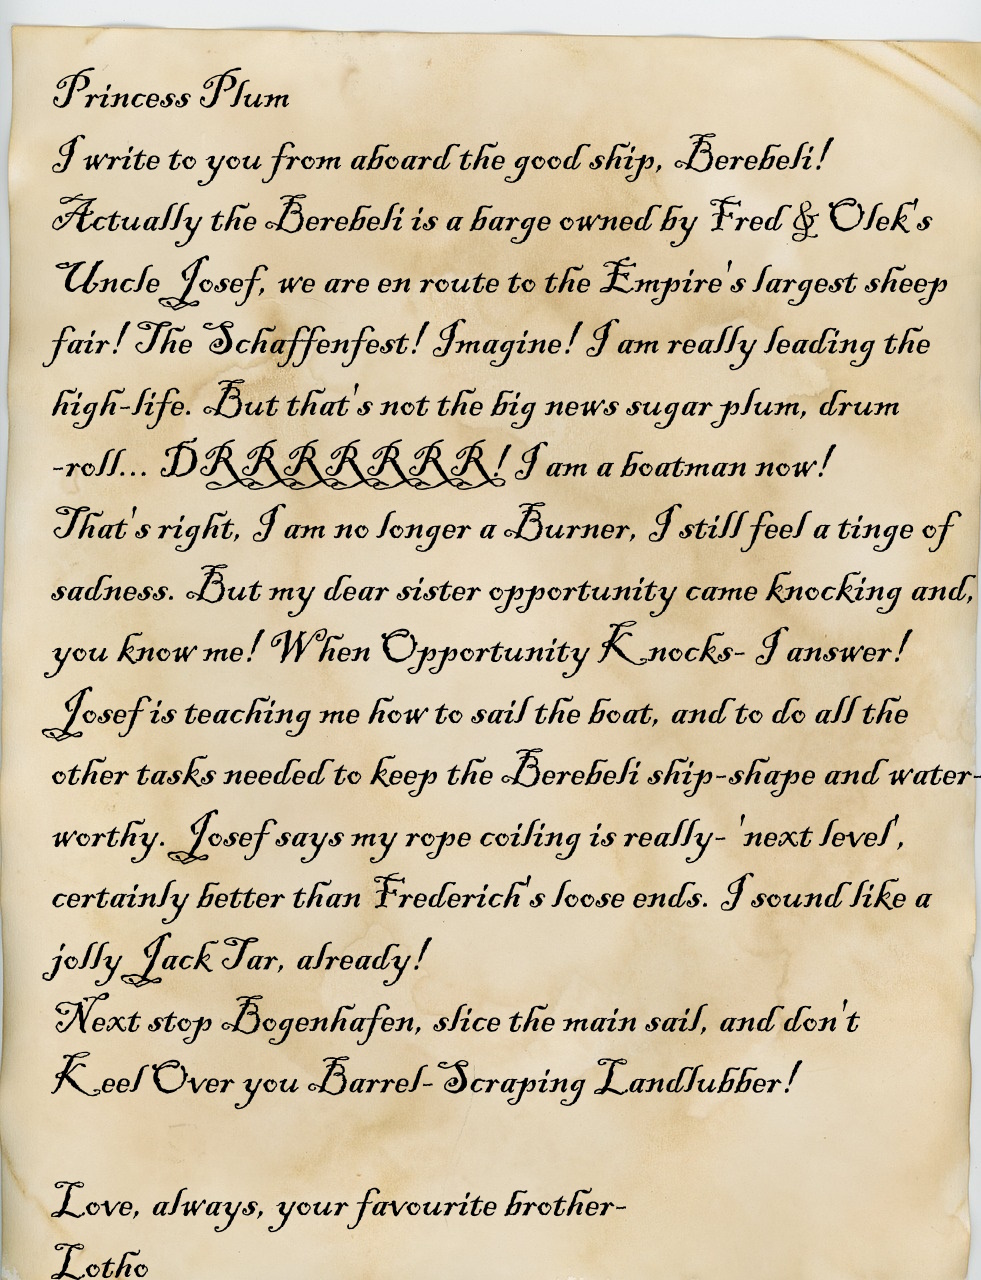 Princess Plum
I write to you from aboard the good ship, Berebeli!
Actually the Berebeli is a barge owned by Fred & Olek's
Uncle Josef, we are en route to the Empire's largest sheep
fair! The Schaffenfest! Imagine! I am really leading the
high-life. But that's not the big news sugar plum, drum
-roll... DRRRRRRR! I am a boatman now!
That's right, I am no longer a Burner, I still feel a tinge of
sadness. But my dear sister opportunity came knocking and,
you know me! When Opportunity Knocks- I answer!
Josef is teaching me how to sail the boat, and to do all the
other tasks needed to keep the Berebeli ship-shape and water-
worthy. Josef says my rope coiling is really- 'next level',
certainly better than Frederich's loose ends. I sound like a
jolly Jack Tar, already!
Next stop Bogenhafen, slice the main sail, and don't
Keel Over you Barrel-Scraping Landlubber!
Love, always, your favourite brother-
Lotho